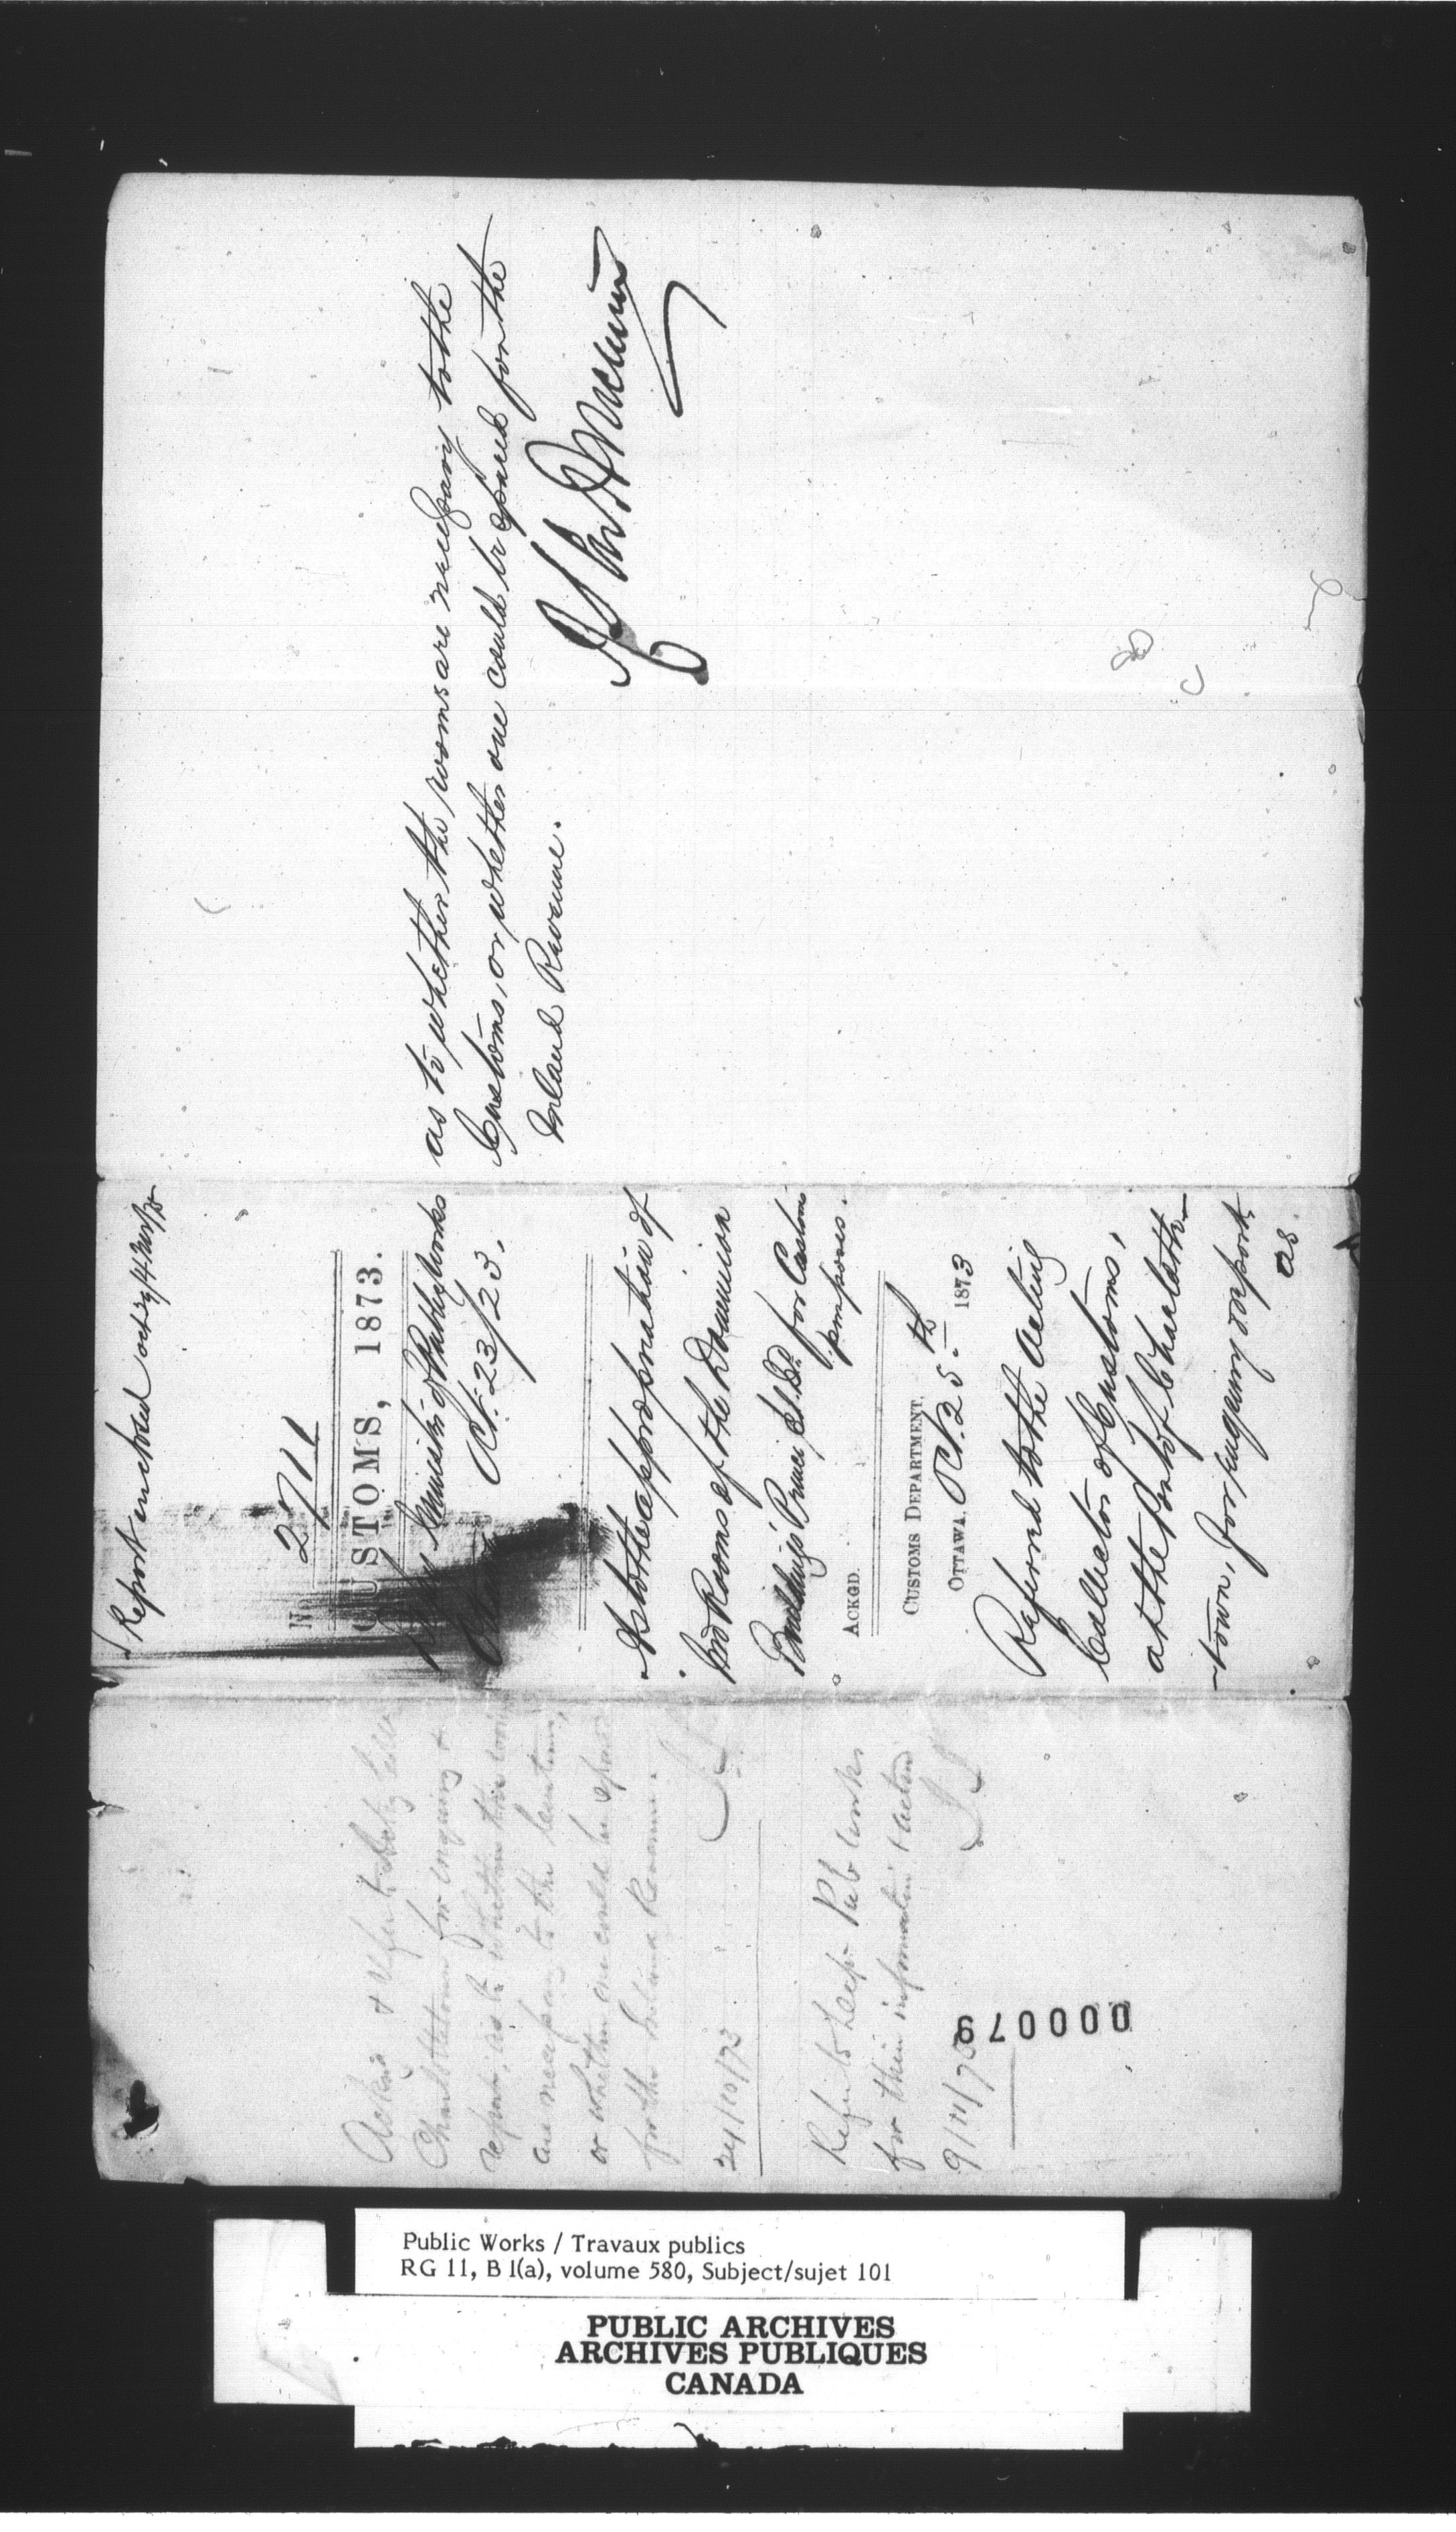 Report enclosed
No 2711
CUSTOMS, 1873.
Minister of Public Works
Oct. 23/23.
As to the appropriation of
two Rooms of the Dominion
Buildings Prince Ed. Id. for Custom
purposes.
ACKGD.
CUSTOMS DEPARTMENT,
OTTAWA, Oct. 25th 1873
Referred to the Acting
Collector of Customs,
at the Port of Charlotte-
-town, for enquiry & report
as.
as to whether the rooms are necessary to the
Customs, or whether one could be spared for the
Inland Revenue.
Ackn'd & refer to Actg Coll
Charlottetown for enquiry &
report, as to whether the rooms
are necessary to the Customs,
or whether one could be spared
for the Inland Revenue.
24/10/73
Refer to Dept Pub Works
for their information & action
9/11/73
000079
Public Works / Travaux publics
RG 11, B 1(a), volume 580, Subject/sujet 101
PUBLIC ARCHIVES
ARCHIVES PUBLIQUES
CANADA